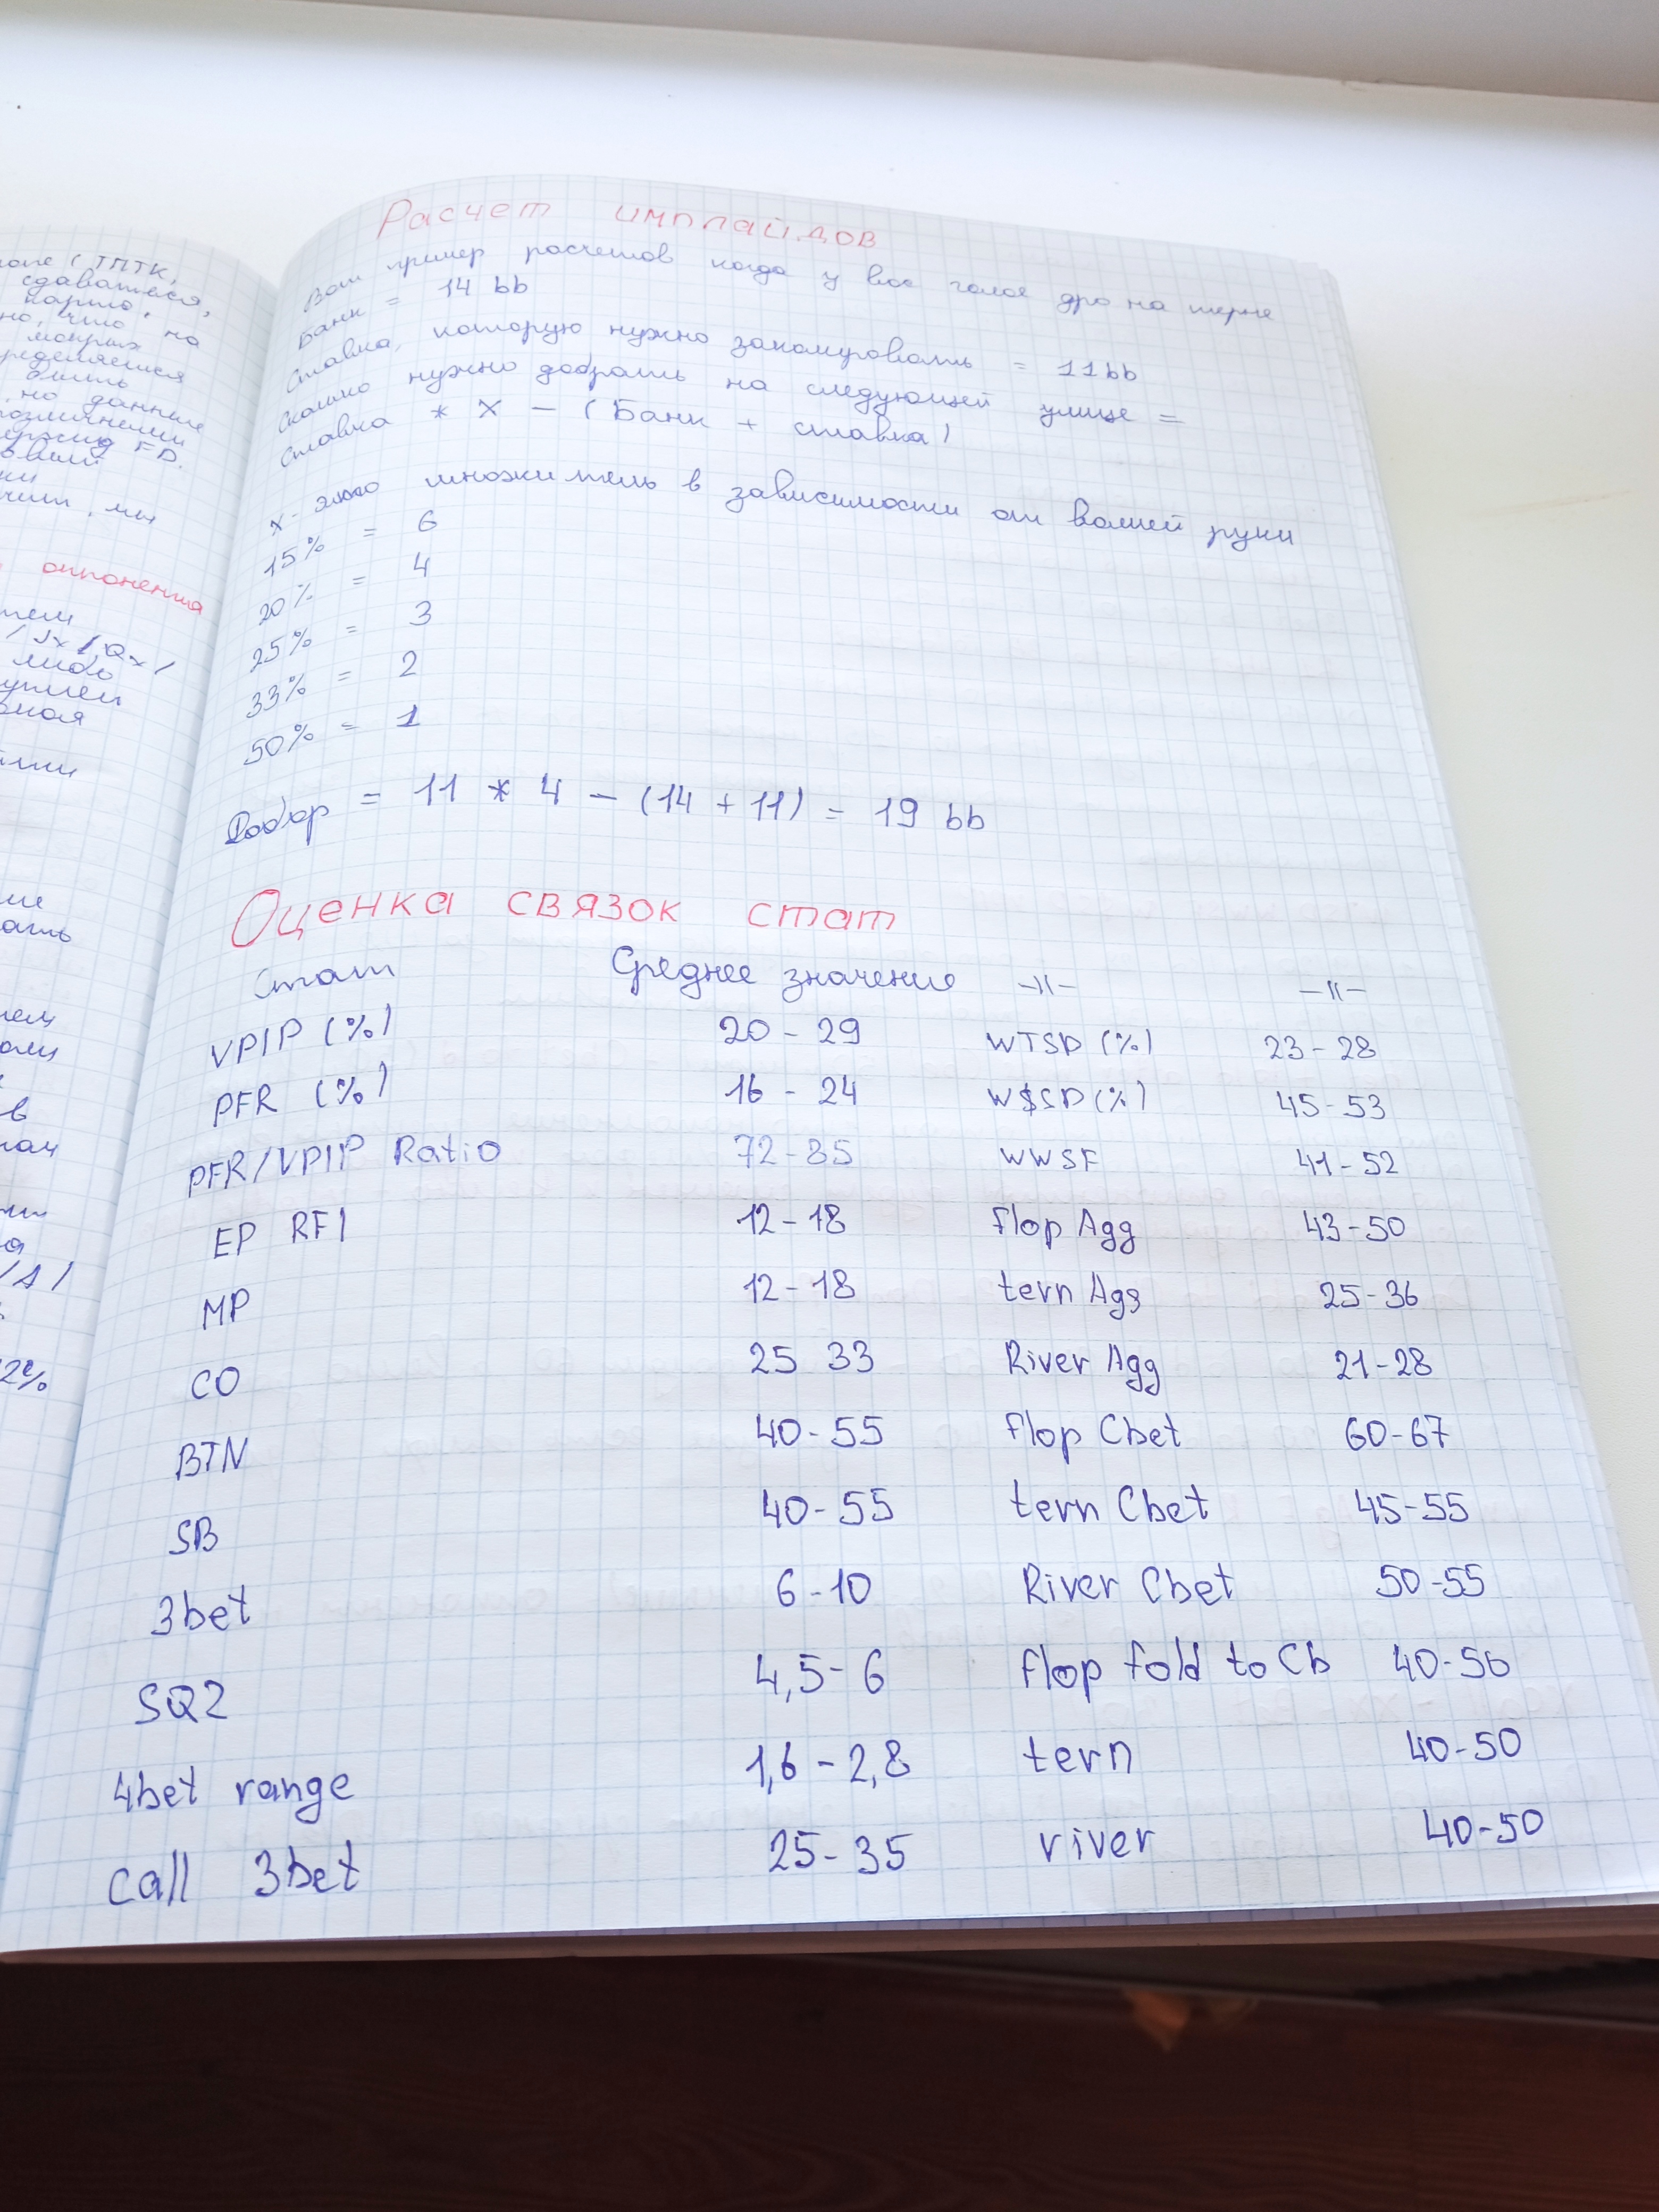 опе (ТПТК,
сдаваться,
но, что на
мокрых
ределяется
бить
, но данные
FD.
чит, мы
оппонента
/Jx/,Qx/
либо
/A/
2%
Расчет имплайдов
Вот пример расчетов когда у вас голое дро на терне
Банк = 14 bb
Ставка, которую нужно заколировать = 11bb
Сколько нужно добрать на следующей улице =
Ставка * X - (Банк + ставка)
X - это множитель в зависимости от вашей руки
15% = 6
20% = 4
25% = 3
33% = 2
50% = 1
Добор = 11 * 4 - (14 + 11) = 19 bb
Оценка связок стат
Стат Среднее значение -//- -//-
VPIP (%) 20 - 29 WTSD (%) 23 - 28
PFR (%) 16 - 24 W$SD (%) 45-53
PFR/VPIP Ratio 72-85 WWSF 41-52
EP RFI 12-18 flop Agg 43-50
MP 12-18 tern Agg 25-36
CO 25 33 River Agg 21-28
BTN 40-55 flop Cbet 60-67
SB 40-55 tern Cbet 45-55
3bet 6-10 River Cbet 50-55
SQZ 4,5-6 flop fold to Cb 40-50
4bet range 1,6-2,8 tern 40-50
call 3bet 25-35 river 40-50